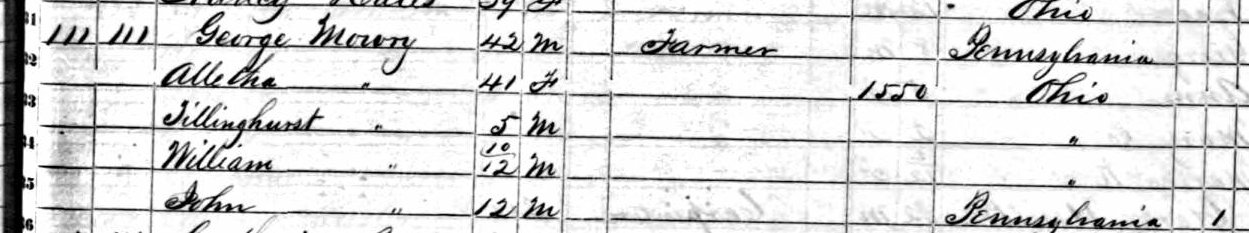 Ohio
111 111 George Mowry 42 M Farmer Pennsylvania
32
Alletha " 41 F 1550 Ohio
33
Tillinghurst " 5 M "
34
William " 10/12 M "
35
John " 12 M Pennsylvania 1
36